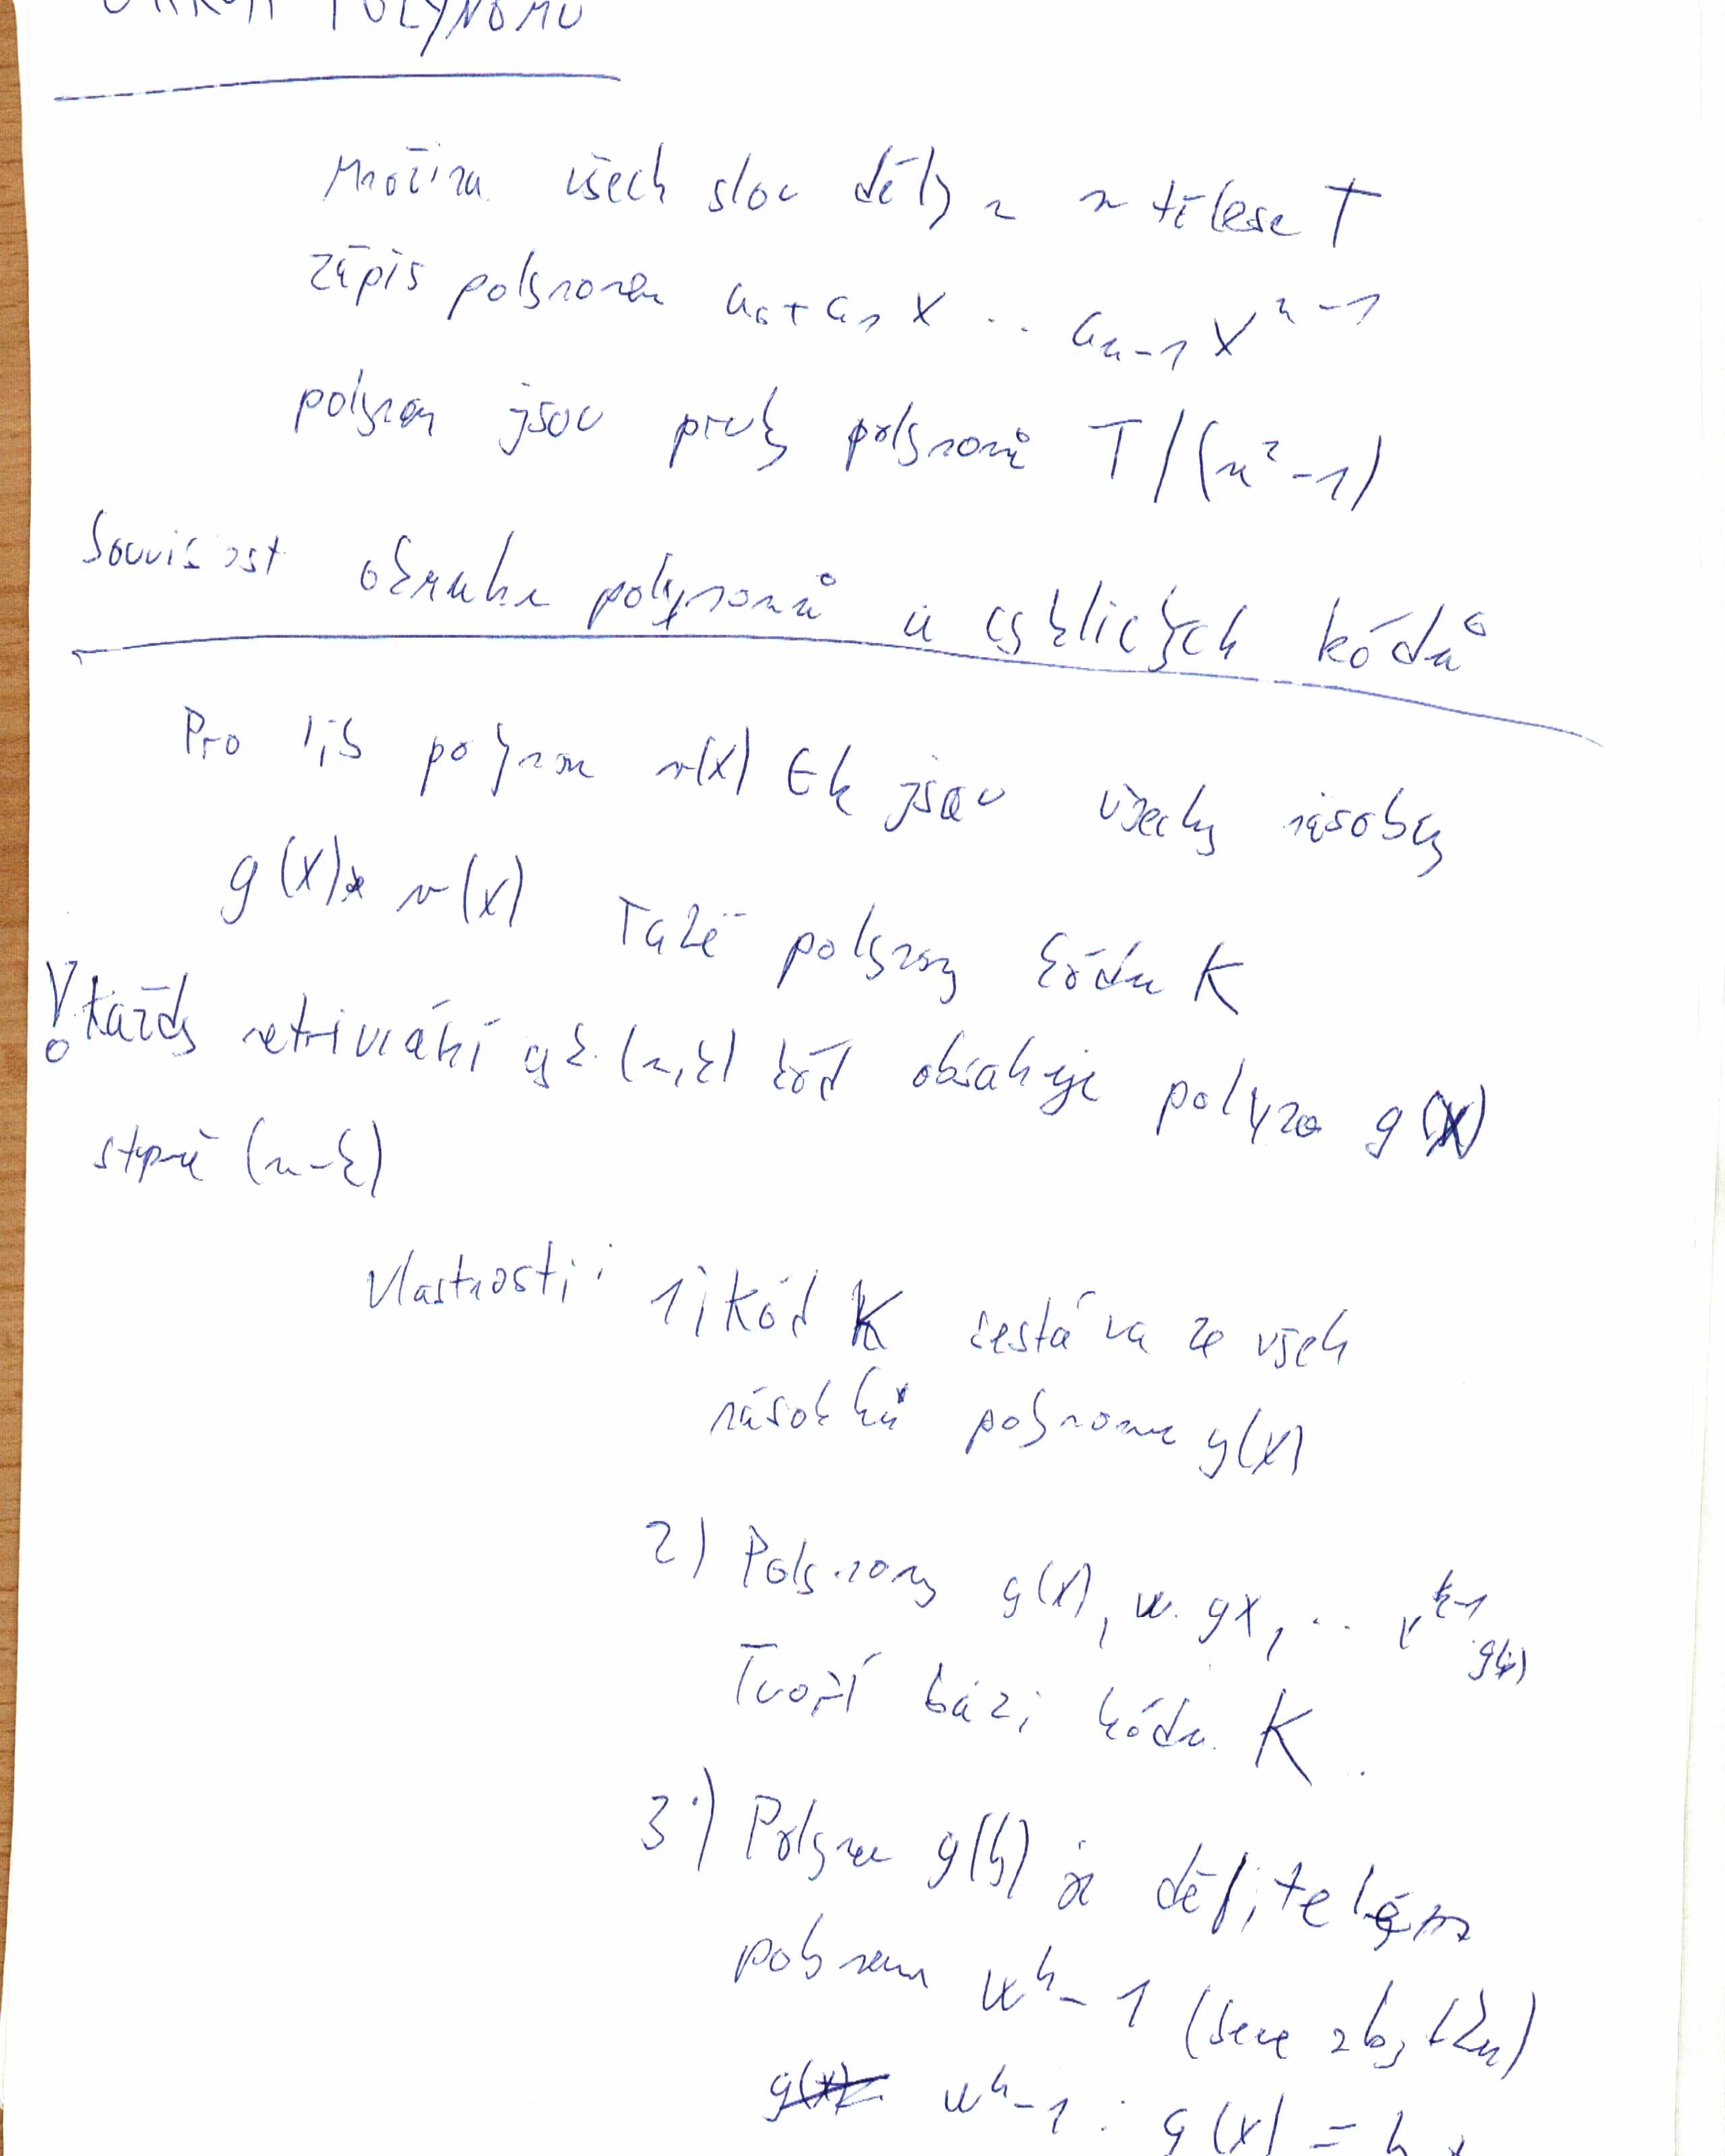 POLYNOMU
Množina všech slov délky n z tělese T
zápis polynomem a₀+a₁x .. aₙ₋₁xⁿ⁻¹
polynom jsou prvky polynomů T/(x²-1)
Souvislost okruhu polynomů a cyklických kódů
Pro lib polynom v(x) ∈ k jsou všechy násobky
g(x)* v(x) Také polynomy kódu K
Každy netriviální cyk. (n,k) kód obsahuje polyno g(x)
stupně (n-k)
Vlastnosti: 1) kód K sestáva ze všech
násobků polynomu g(x)
2) Polynomy g(x), x. gx, .. xᵏ⁻¹ g(x)
Tvoří bázi kódu K.
3) Polynom g(x) je dělitelem
polynomu xⁿ-1 (beze zbytku)
g(x) xⁿ-1 : g(x) = h